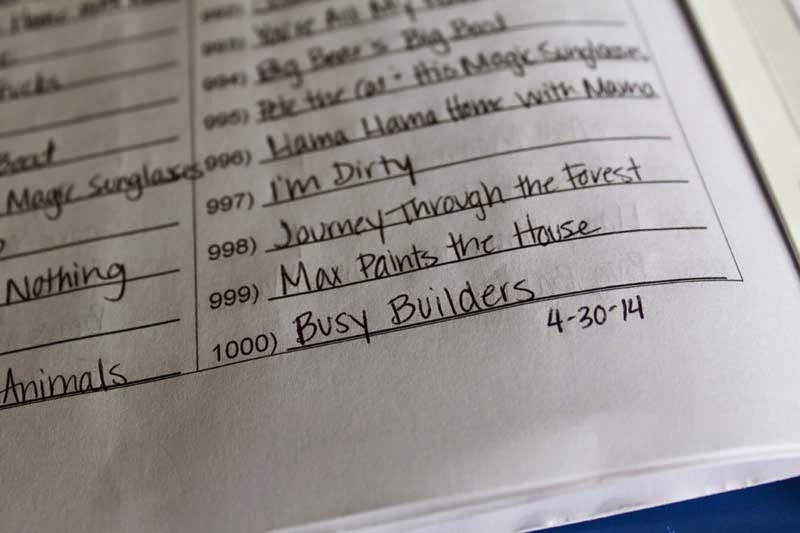 Boat
Magic Sunglases
Nothing
Animals
993) You're All My
994) Big Bear's Big Boat
995) Pete the Cat + His Magic Sunglases
996) Llama Llama Home With Mama
997) I'm Dirty
998) Journey Through the Forest
999) Max Paints the House
1000) Busy Builders
4-30-14